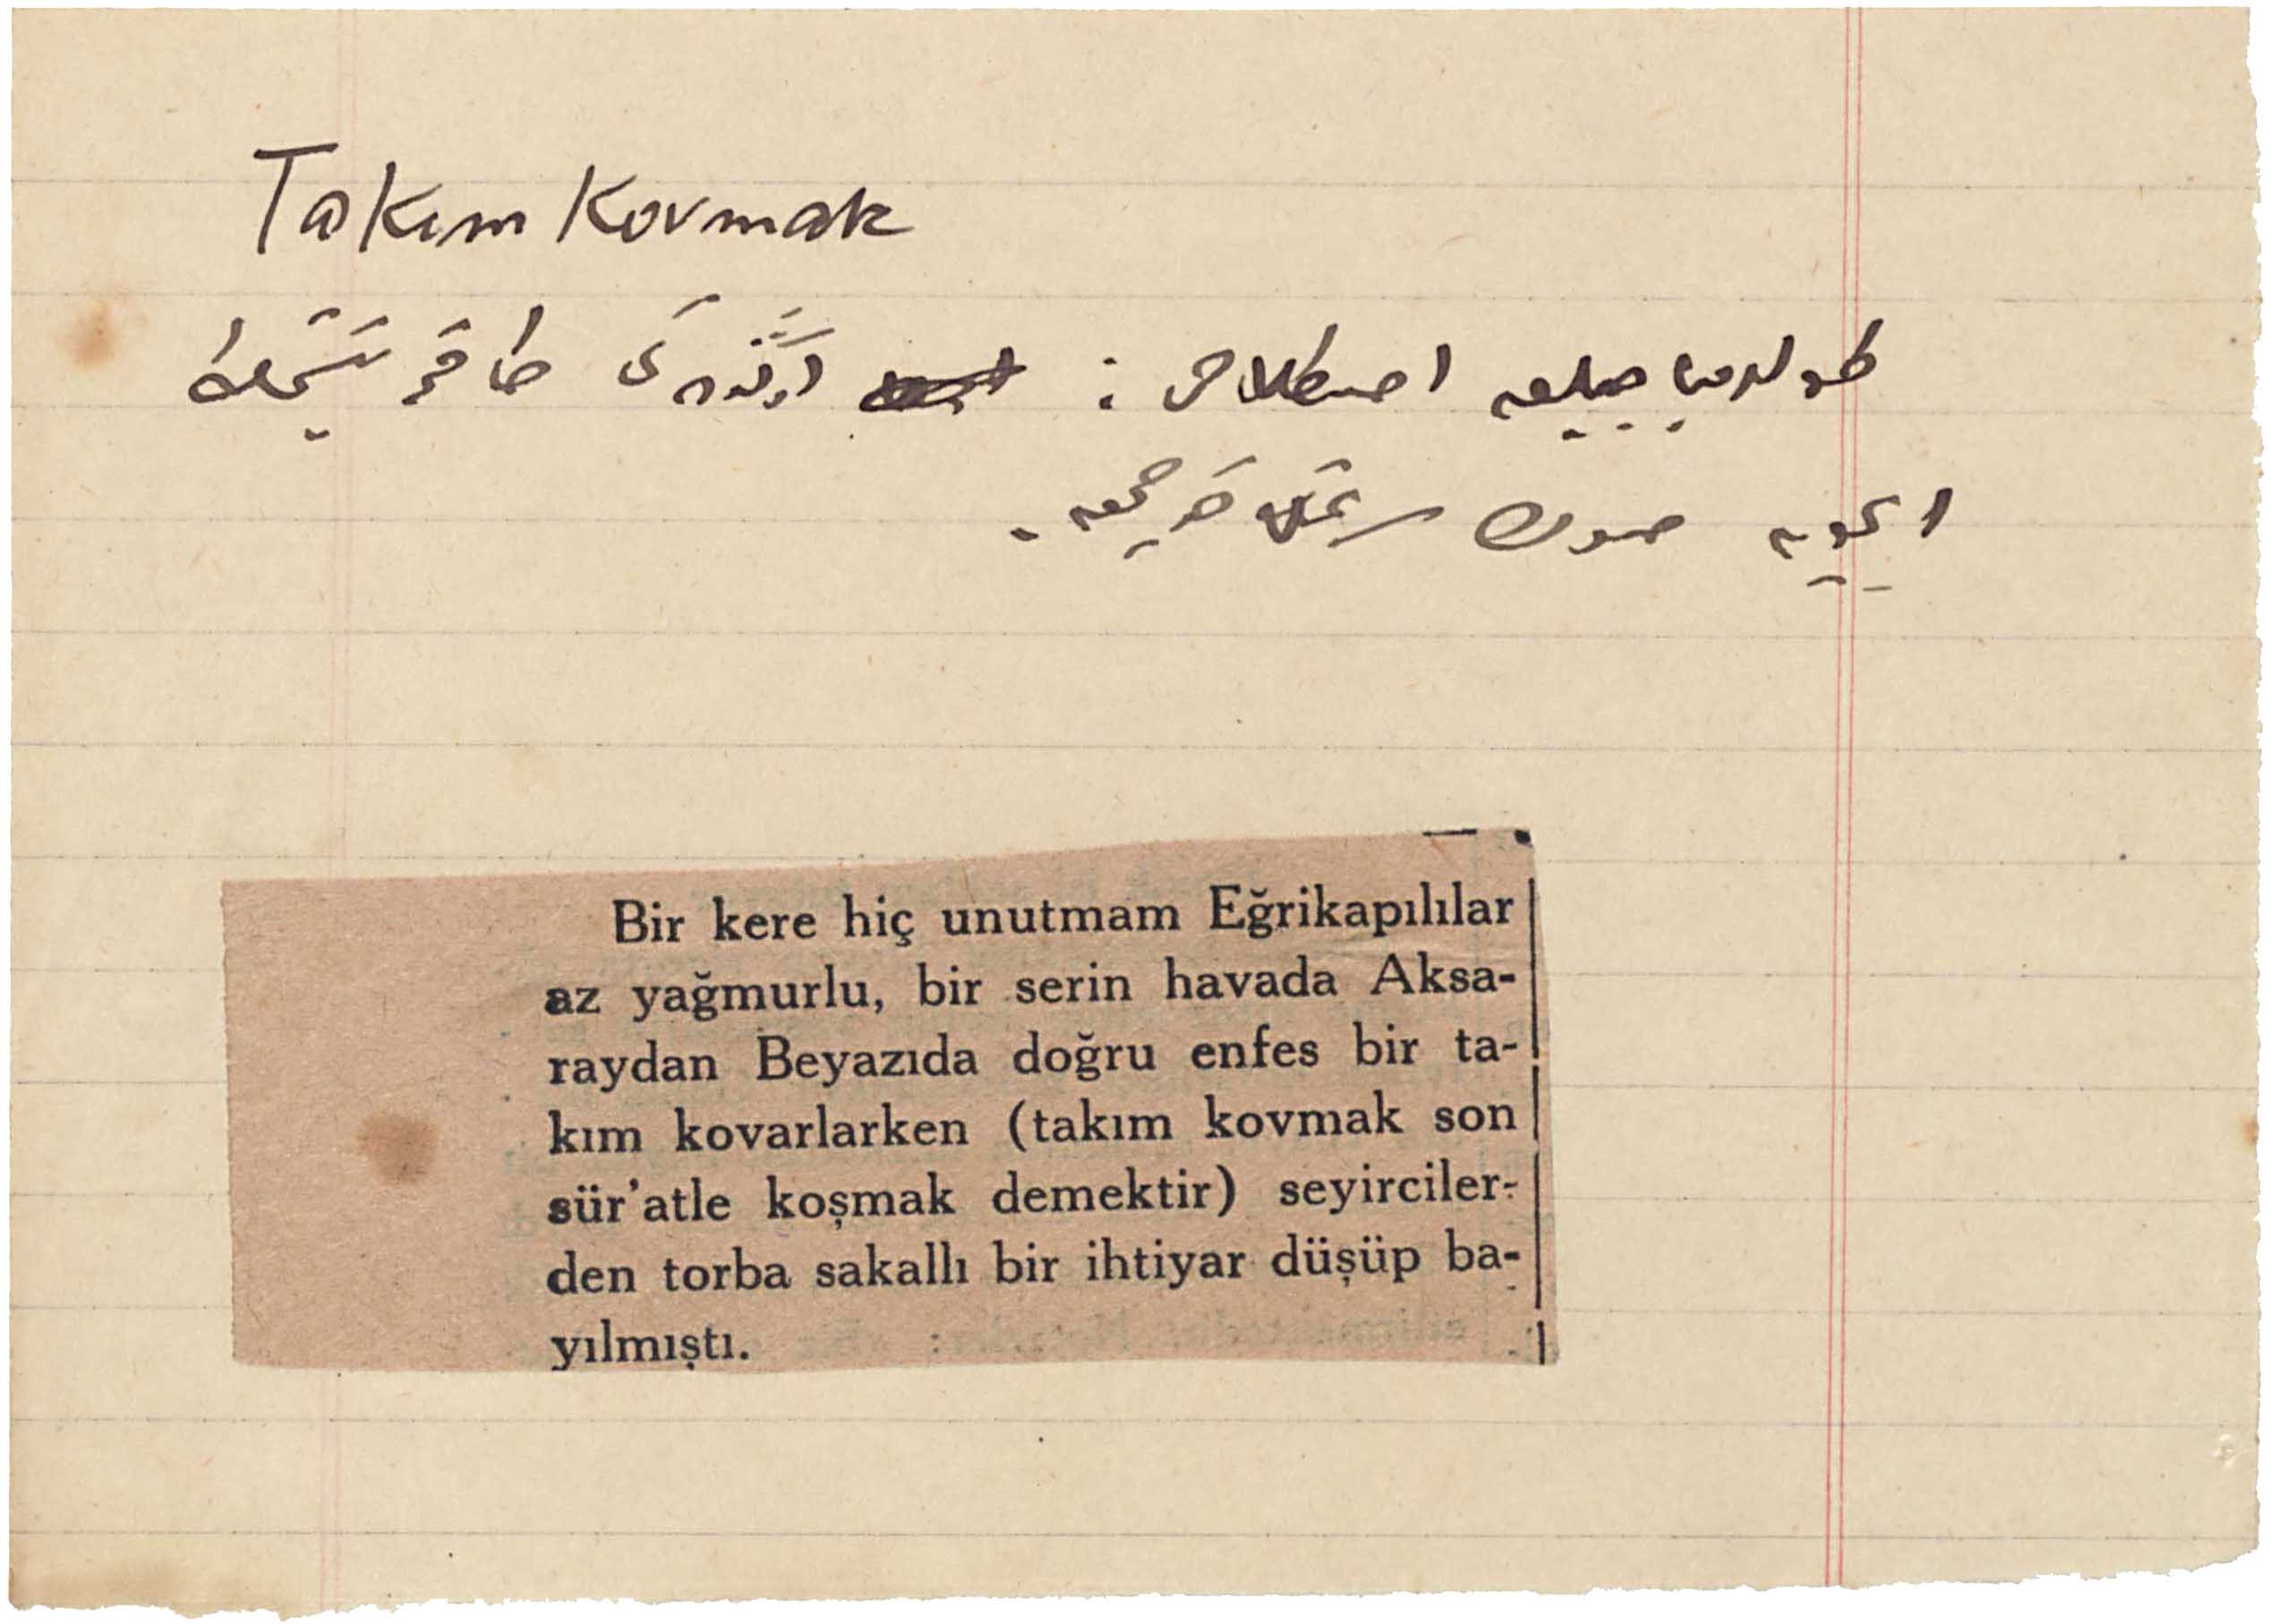 Takım Kovmak
طولومباجیلق اصطلاحی : اوڭنده‌كی طاقمی
ایچون صوڭ سرعتله
Bir kere hiç unutmam Eğrikapılılar
az yağmurlu, bir serin havada Aksa-
raydan Beyazıda doğru enfes bir ta-
kım kovarlarken (takım kovmak son
sür'atle koşmak demektir) seyirciler-
den torba sakallı bir ihtiyar düşüp ba-
yılmıştı.